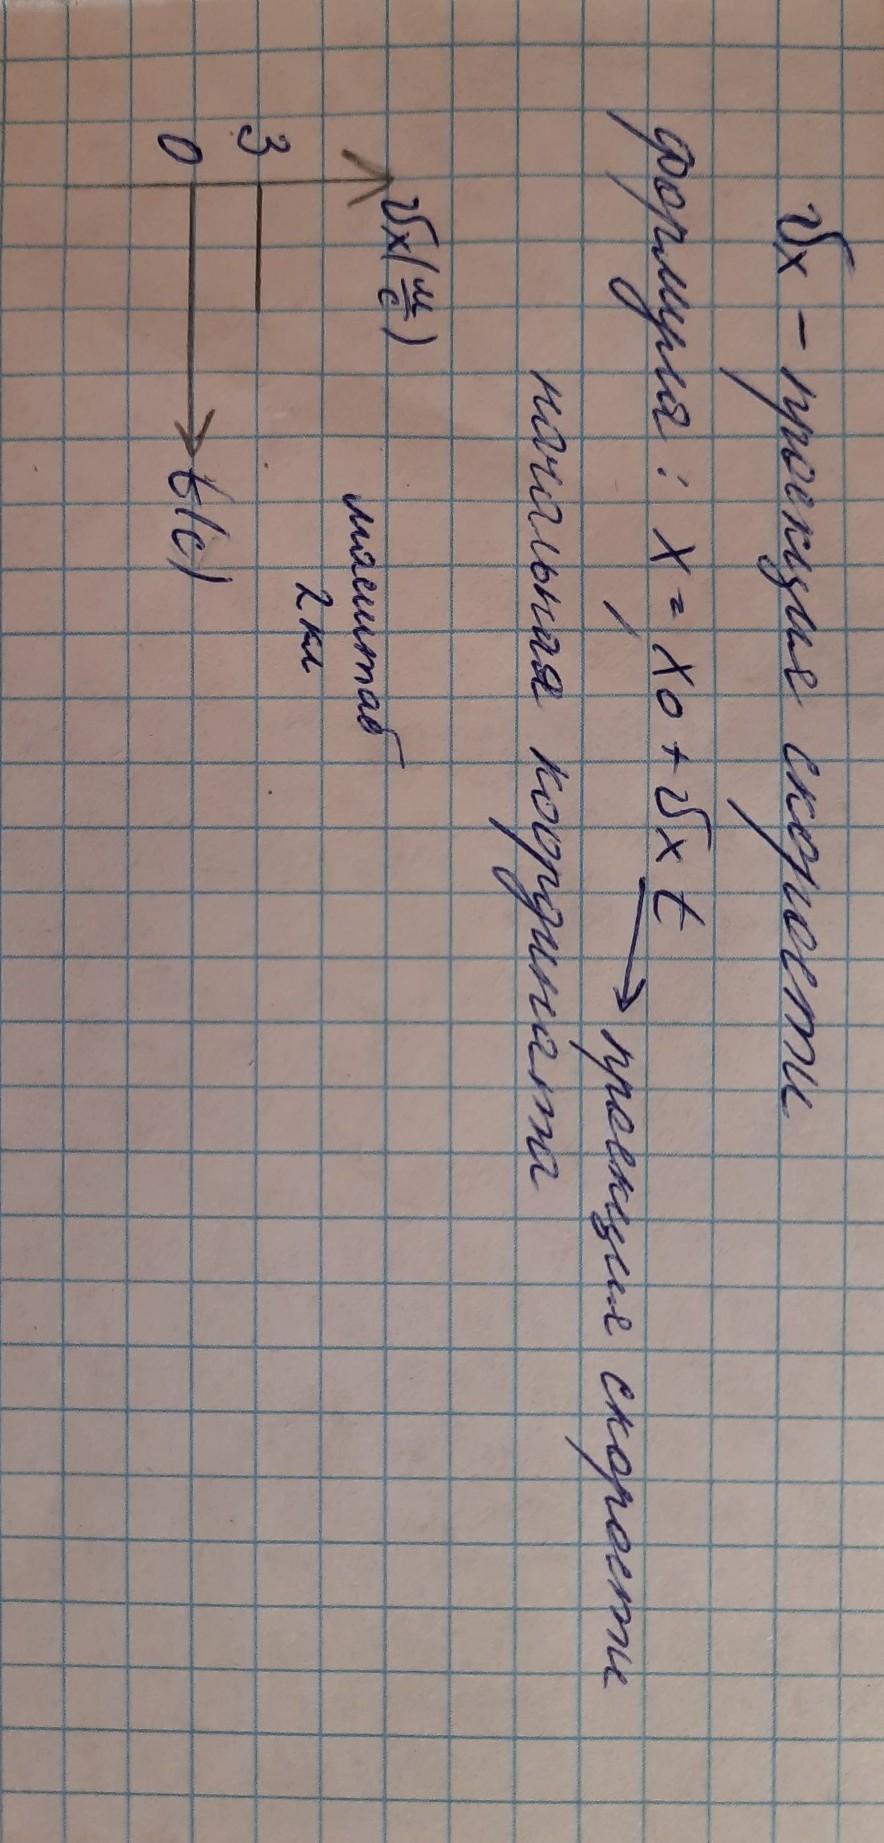 υx - проекция скорости
формула: x = x0 + υx t
→ проекция скорости
начальная координата
υx(м/с)
масштаб
2 кл
3
0
t(c)